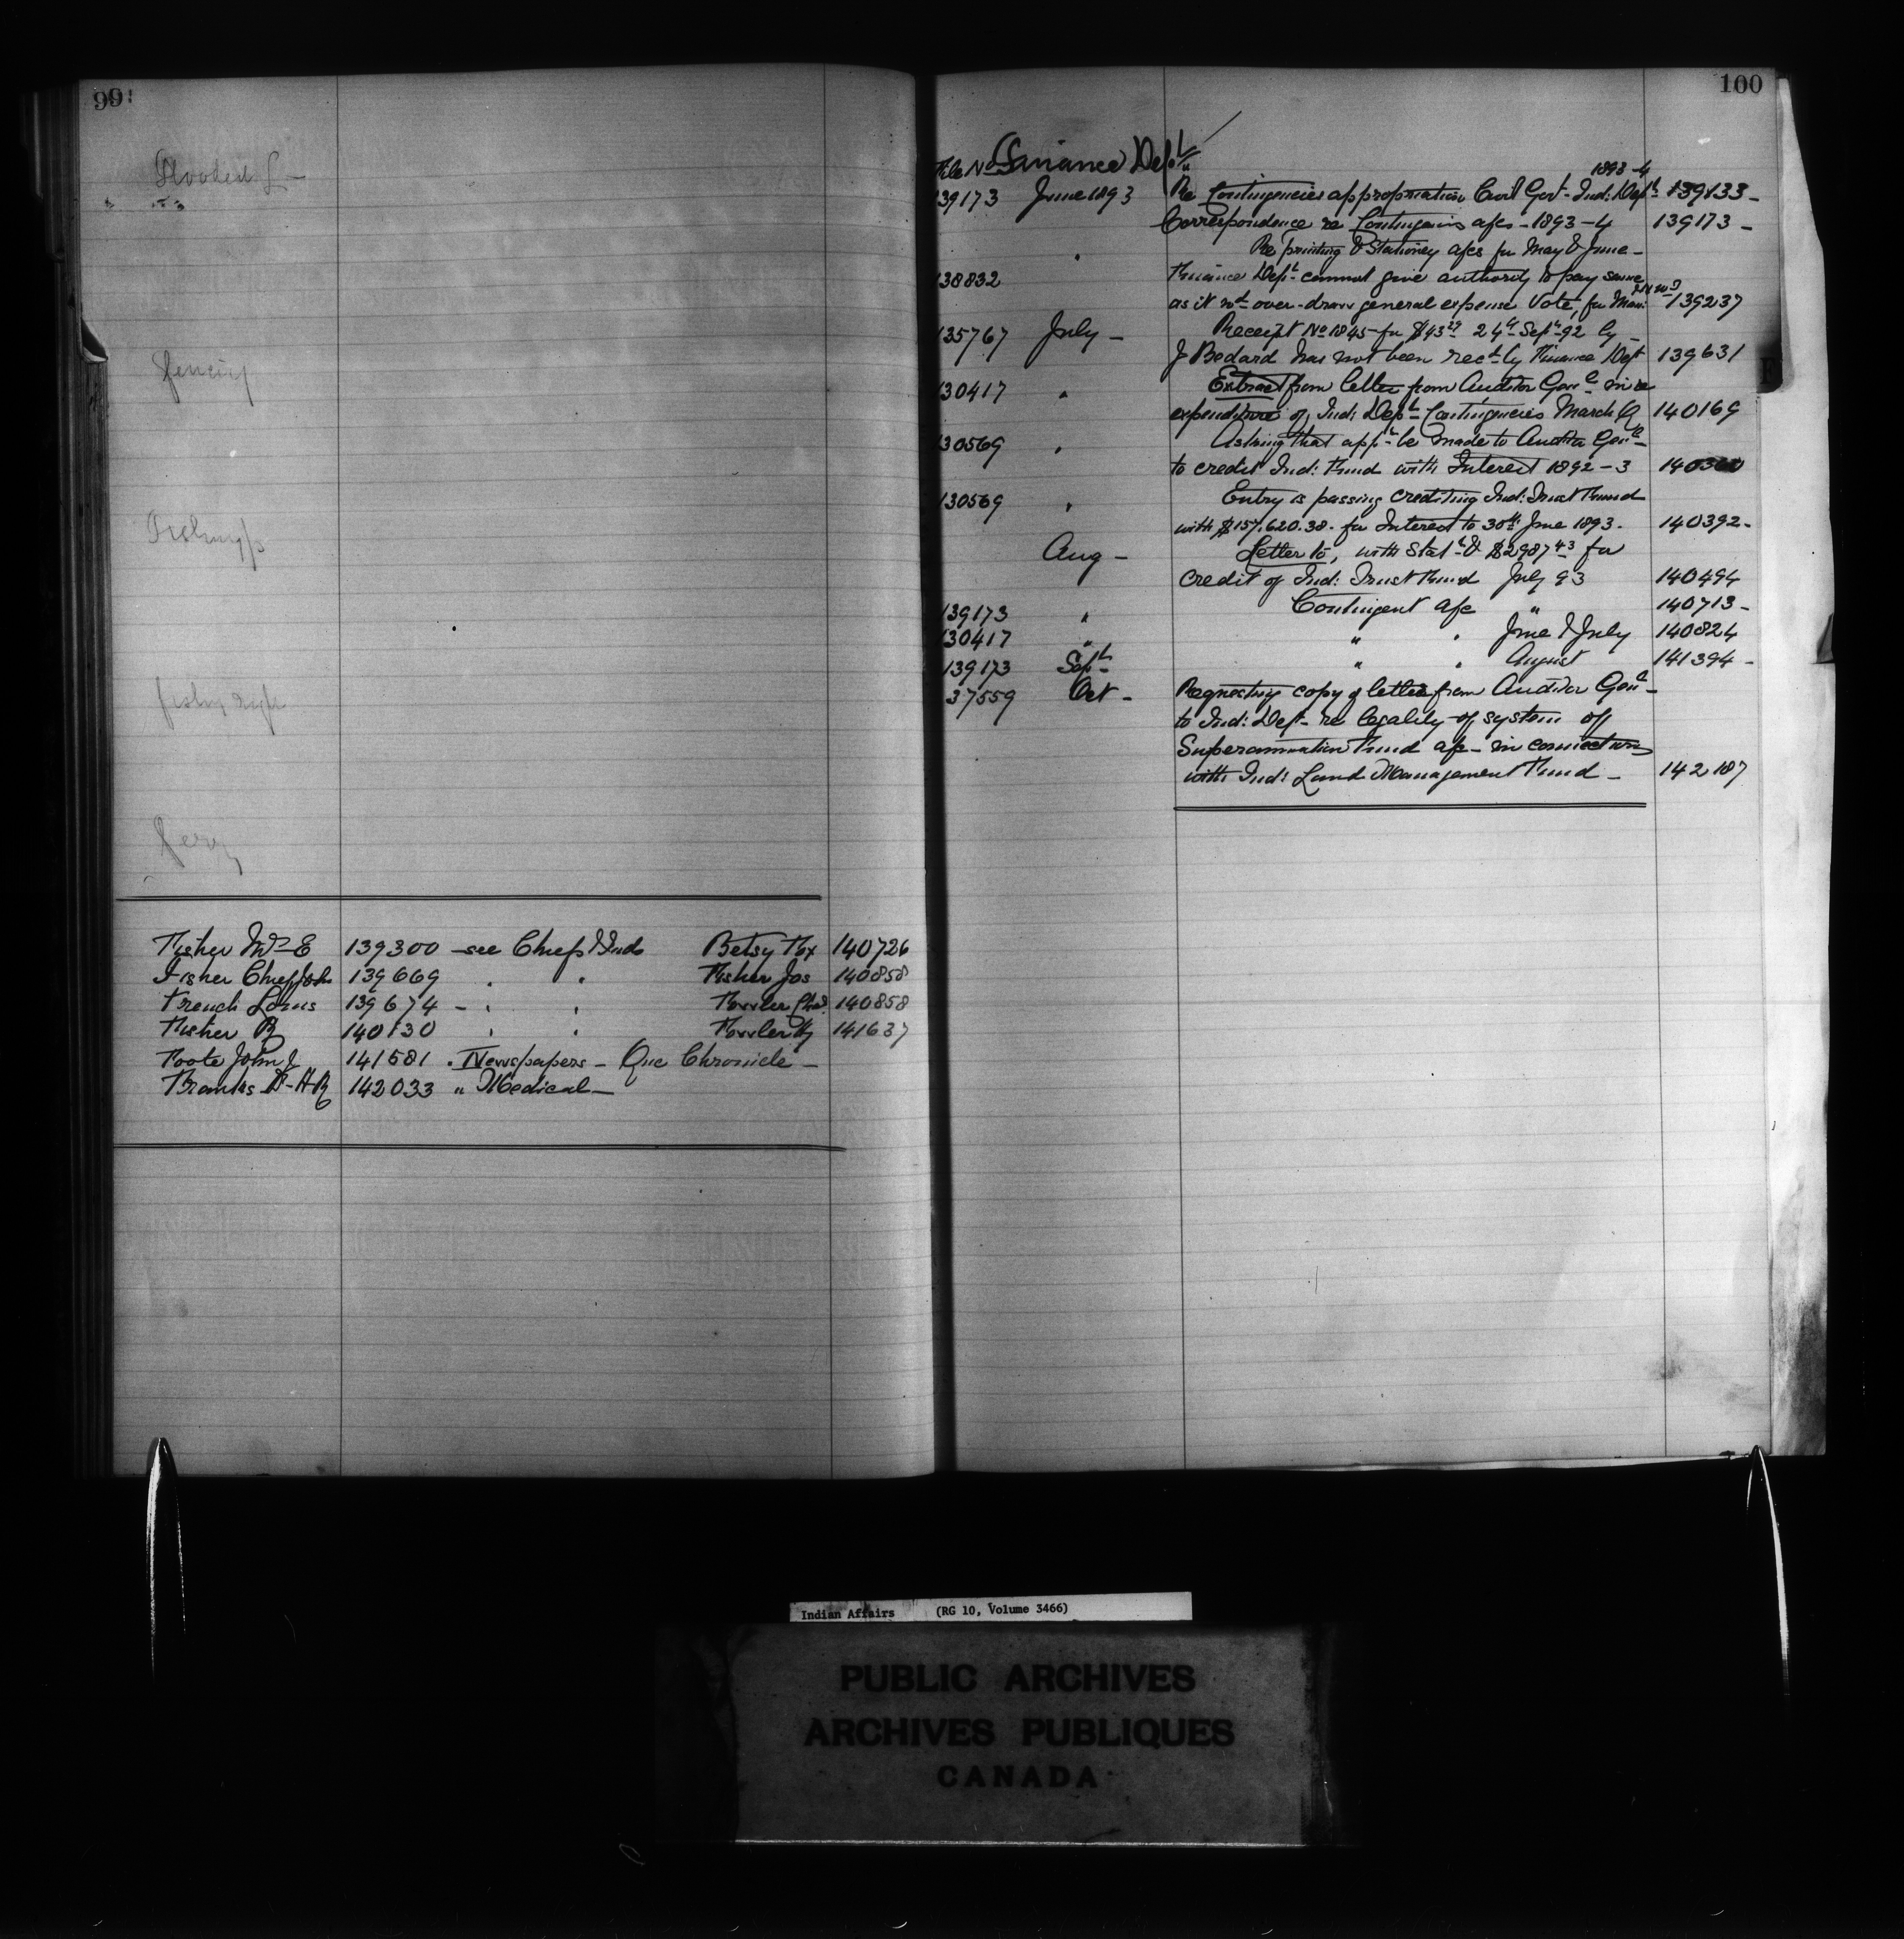 99
Flooded L —
Fencing
Fishing
fishing
Ferry
Fisher Mrs E 139300 — see Chiefs & Inds Betsy Fox 140726
Fisher Chief John 139669 " " Fisher Jos 140858
French Louis 139674 — " " Fowler Chas 140858
Fisher R 140130 " " Fowler Hy 141637
Foote John J 141581 " Newspapers — Que Chronicle —
Franks Dr H R 142033 " Medical —
100
File No Finance Dept
1893-4
139173 June 1893 Re Contingencies appropriation Civil Govt - Ind: Dept 139133 —
Correspondence re Contingencies a/cs - 1893-4 139173 —
" Re printing & Stationery a/cs for May & June —
138832 Finance Dept cannot give authority to pay same
as it wd over-draw general expense Vote, for Man: & N.W.T 139237
135767 July — Receipt No 1845 for $43 29 24th Sept 92 by —
J Bedard has not been recd by Finance Dept 139631
130417 " Extract from letter from Auditor Genl in re
expenditure of Ind: Dept Contingencies March 140169
130569 " Asking that appn be made to Auditor Genl —
to credit Ind: Fund with Interest 1892-3 140360
130569 " Entry is passing crediting Ind: Trust Fund
with $157,620.38 - for Interest to 30th June 1893 - 140392 -
Aug — Letter to, with Statt & $2987 43 for
credit of Ind: Trust Fund July 93 140494
139173 " Contingent a/c " 140713 —
130417 " " " June & July 140824
139173 Sept — " " August 141394 —
37559 Oct — Requesting copy of letter from Auditor Genl —
to Ind: Dept - re legality of system of
Superannuation Fund a/c - in connection
with Ind: Land Management Fund — 142187
F
Indian Affairs (RG 10, Volume 3466)
PUBLIC ARCHIVES
ARCHIVES PUBLIQUES
CANADA